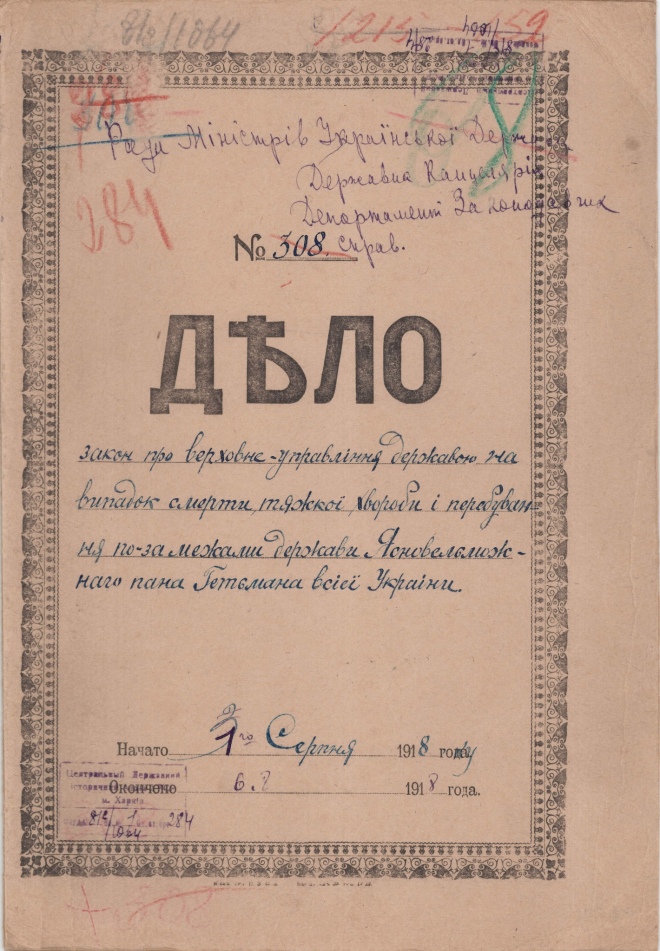 812/1064
1215 59
284
Рада Міністрів Української Держави
Державна Канцелярія
Департамент Законодавчих
справ.
№ 308.
ДѢЛО
закон про верховне-управління державою на
випадок смерти, тяжкої хвороби і перебуван-
ня по-за межами держави Ясновельмож-
наго пана Гетьмана всієї України.
Начато 1го Серпня 1918 году
Окончено 6. 1918 года.
Центральный Державний
м. Харків
812 1 284
1064